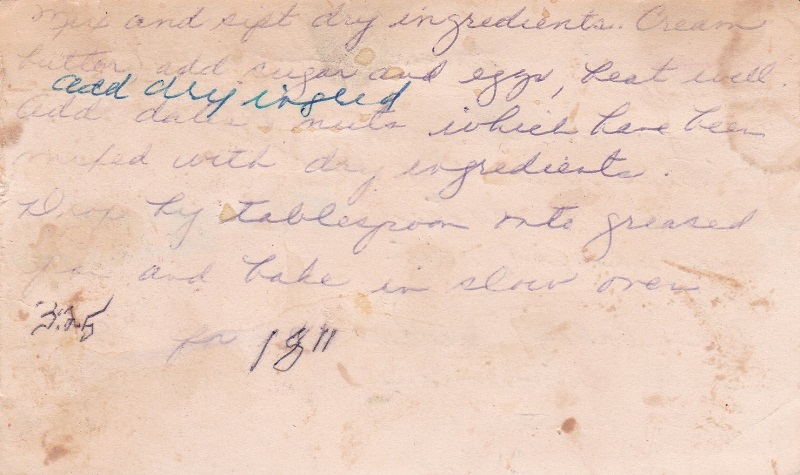 Mix and sift dry ingredients. Cream
butter add sugar and eggs, beat well.
add dry ingred
Add dates, nuts which have been
mixed with dry ingredients.
Drop by tablespoon onto greased
pan and bake in slow oven
325
for 18"